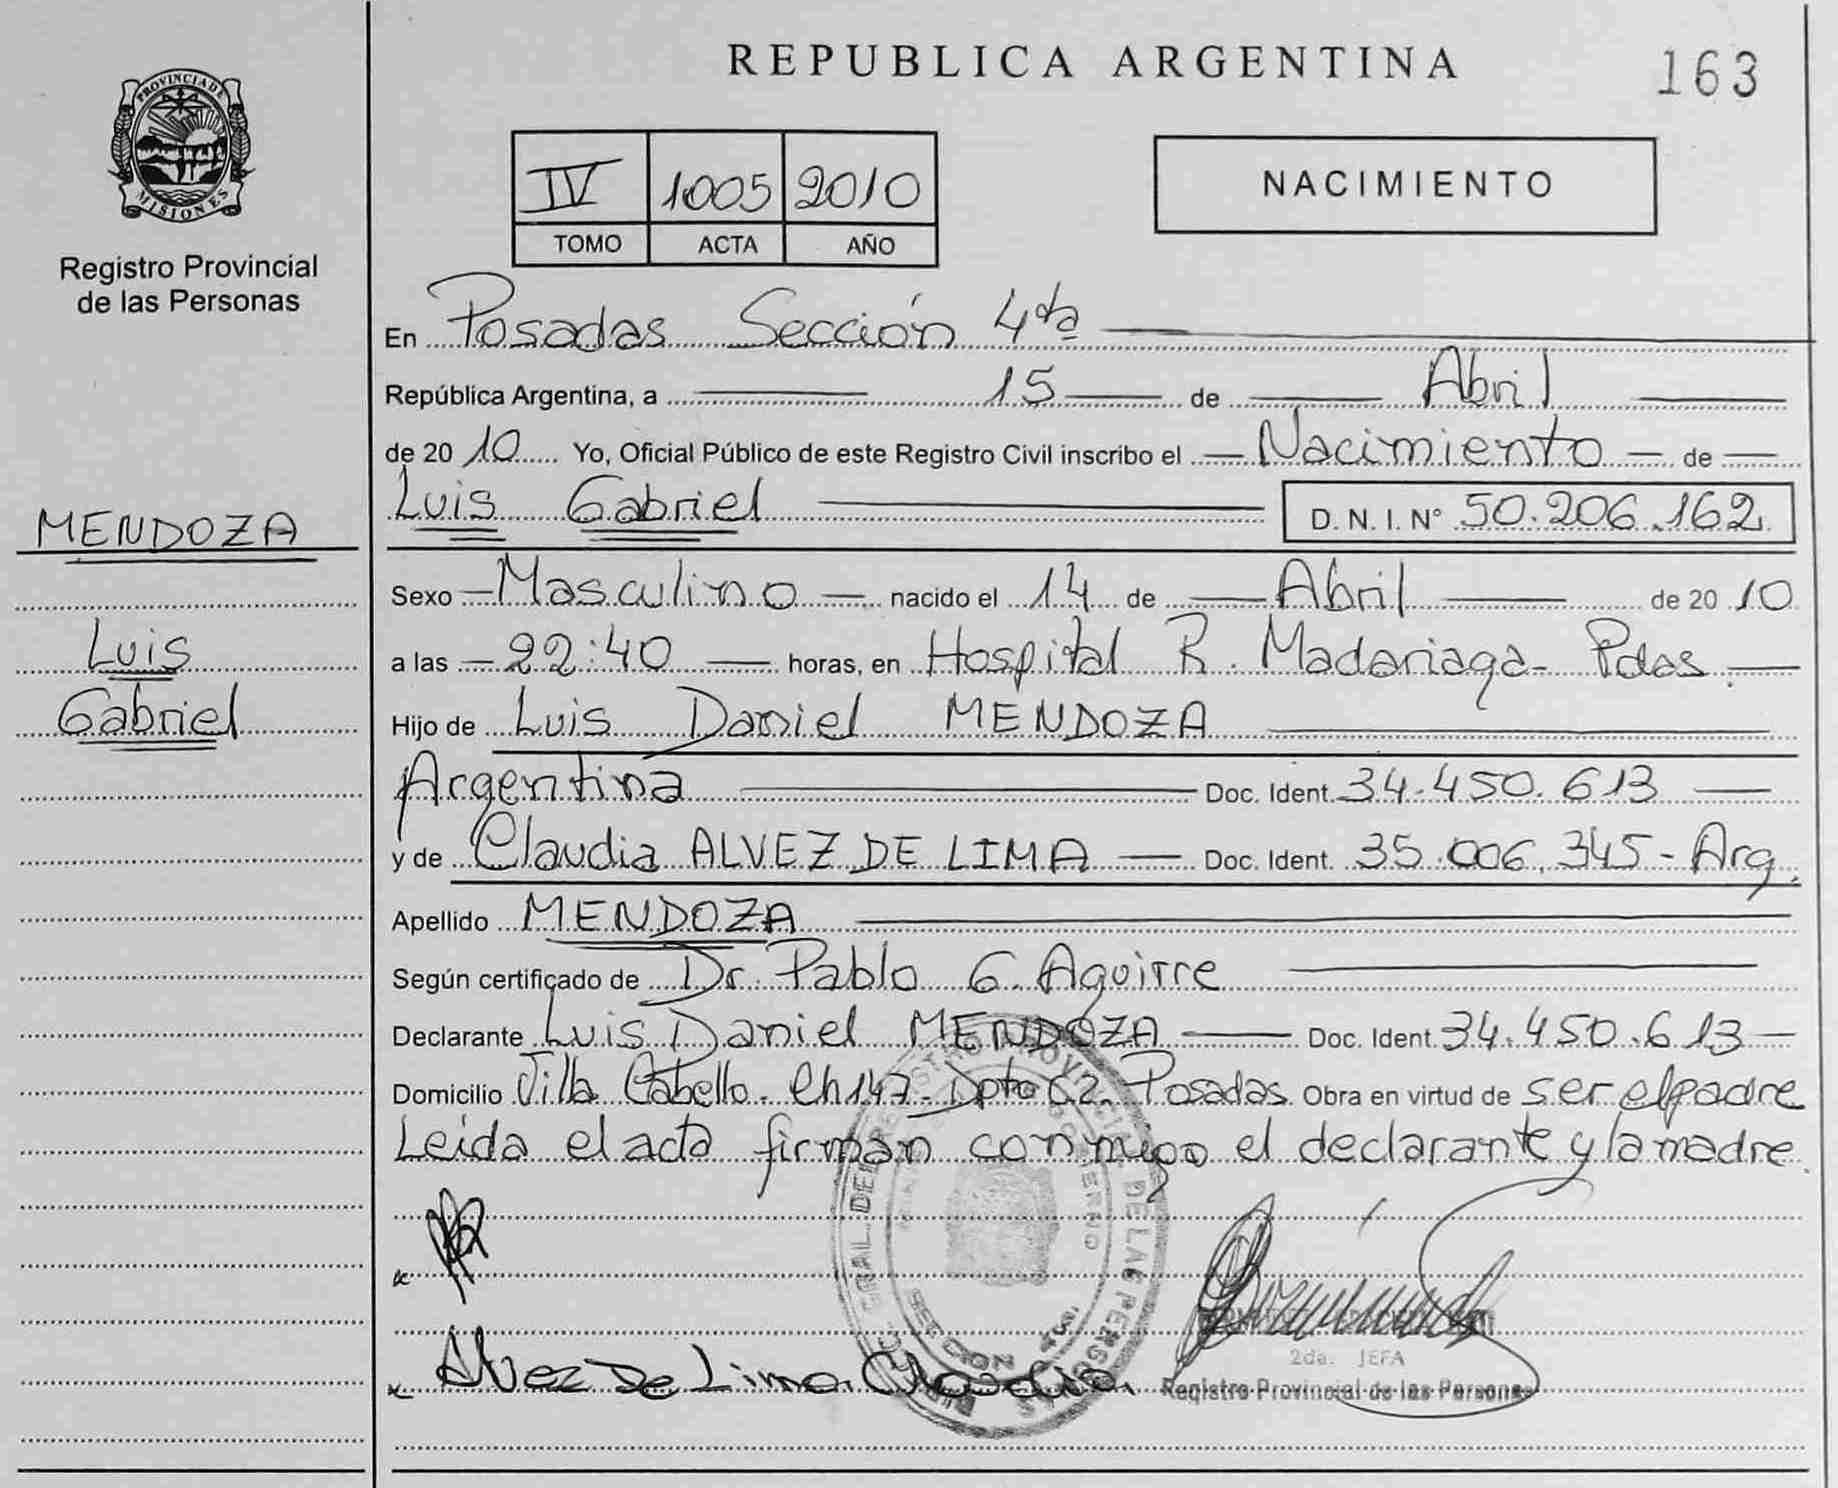 REPUBLICA ARGENTINA
163
PROVINCIA DE
MISIONES
Registro Provincial
de las Personas
IV 1005 2010
TOMO ACTA AÑO
NACIMIENTO
En Posadas Sección 4ta
República Argentina, a 15 de Abril
de 2010 Yo, Oficial Público de este Registro Civil inscribo el Nacimiento de
Luis Gabriel D. N. I. N° 50.206.162
MENDOZA
Luis
Gabriel
Sexo Masculino nacido el 14 de Abril de 2010
a las 22:40 horas, en Hospital R. Madariaga- Pdas.
Hijo de Luis Daniel MENDOZA
Argentina Doc. Ident. 34.450.613
y de Claudia ALVEZ DE LIMA Doc. Ident. 35.006.345- Arg.
Apellido MENDOZA
Según certificado de Dr. Pablo G. Aguirre
Declarante Luis Daniel MENDOZA Doc. Ident. 34.450.613
Domicilio Villa Cabello. Ch 147- Dpto C2- Posadas. Obra en virtud de ser el padre
Leída el acta firman conmigo el declarante y la madre.
Alvez De Lima Claudia.
2da. JEFA
Registro Provincial de las Personas